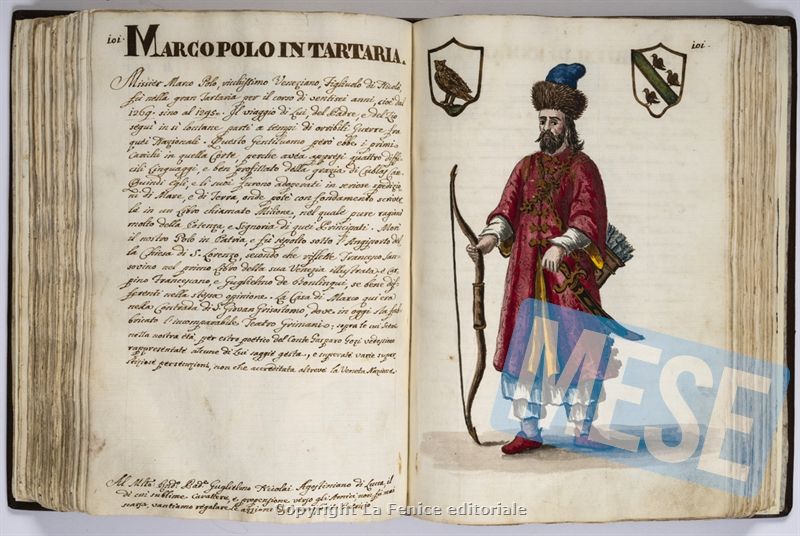 101.
MARCO POLO IN TARTARIA.
Missier Marco Polo, ricchissimo Veneziano, Figliuolo di Nicolò,
fù nella gran Tartaria per il corso di ventisei anni, cioè dal
1269. sino al 1295. Il viaggio di Lui, del Padre, e del Zio
seguì in sì lontane parti a tempi di orribili Guerre fra
quei Nazionali. Questo Gentiluomo però ebbe i primi
Carichi in quella Corte, perche avea appresi quattro diffi-
cili Linguaggi, e ben profittato della grazia di Cublay Can.
Quindi Egli, e li suoi furono adoperati in seriose spedizio-
ni di Mare, e di Terra, onde potè con fondamento scrivere
in un Libro chiamato Milione, nel quale pure ragiona
molto della Potenza, e Signoria di quei Principati. Morì
il nostro Polo in Patria, e fù sepolto sotto l'Angiporto del-
la Chiesa di S. Lorenzo, secondo che riflette Francesco San-
sovino nel primo Libro della sua Venezia illustrata, e Car-
pino Francescano, e Guglielmo de
ferenti nella stessa opinione. La Casa di Marco qui era
nella Contrada di S. Giovan Grisostomo, dove in oggi sta fab-
bricato l'incomparabile Teatro Grimani;
nella nostra età, per estro poetico del Conte Gasparo Gozi vedessimo
rappresentate alcune di Lui saggie gesta, e superate varie super-
stiziose persecuzioni, non che accreditata altrove la Veneta Nazione.
Guglielmo Nicolai Agostiniano di Lucca, il
di cui sublime Carattere, e propensione verso gli Amici
scarsa, vantiamo regolare le azzioni
101.
MESE
Copyright La Fenice editoriale